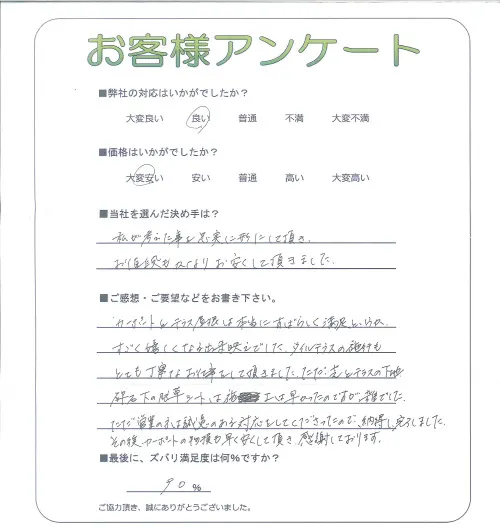 お客様アンケート
■弊社の対応はいかがでしたか?
大変良い 良い 普通 不満 大変不満
■価格はいかがでしたか?
大変安い 安い 普通 高い 大変高い
■当社を選んだ決め手は?
私が考えた事を忠実に形にして頂き、
お値段も お安くして頂きました。
■ご感想・ご要望などをお書き下さい。
カーポートとテラス屋根は本当にすばらしく満足というか、
すごく嬉しくなる出来映えでした。タイルテラスの施行も
とても丁寧なお仕事をして頂きました。ただ、 とテラスの下地
砕石下の防草シートは は早かったのですが雑でした。
ただ営業の は誠意のある対応をしてくださったので、納得し完了しました。
その後、カーポートの も早く安くして頂き感謝しております。
■最後に、ズバリ満足度は何%ですか?
90 %
ご協力頂き、誠にありがとうございました。